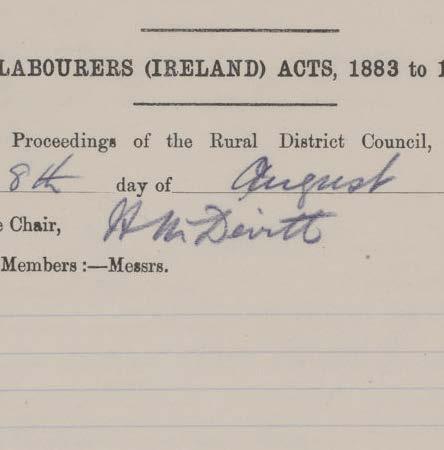 LABOURERS (IRELAND) ACTS, 1883 to 1
Proceedings of the Rural District Council,
8th day of August
e Chair, H McDevitt
Members :—Messrs.